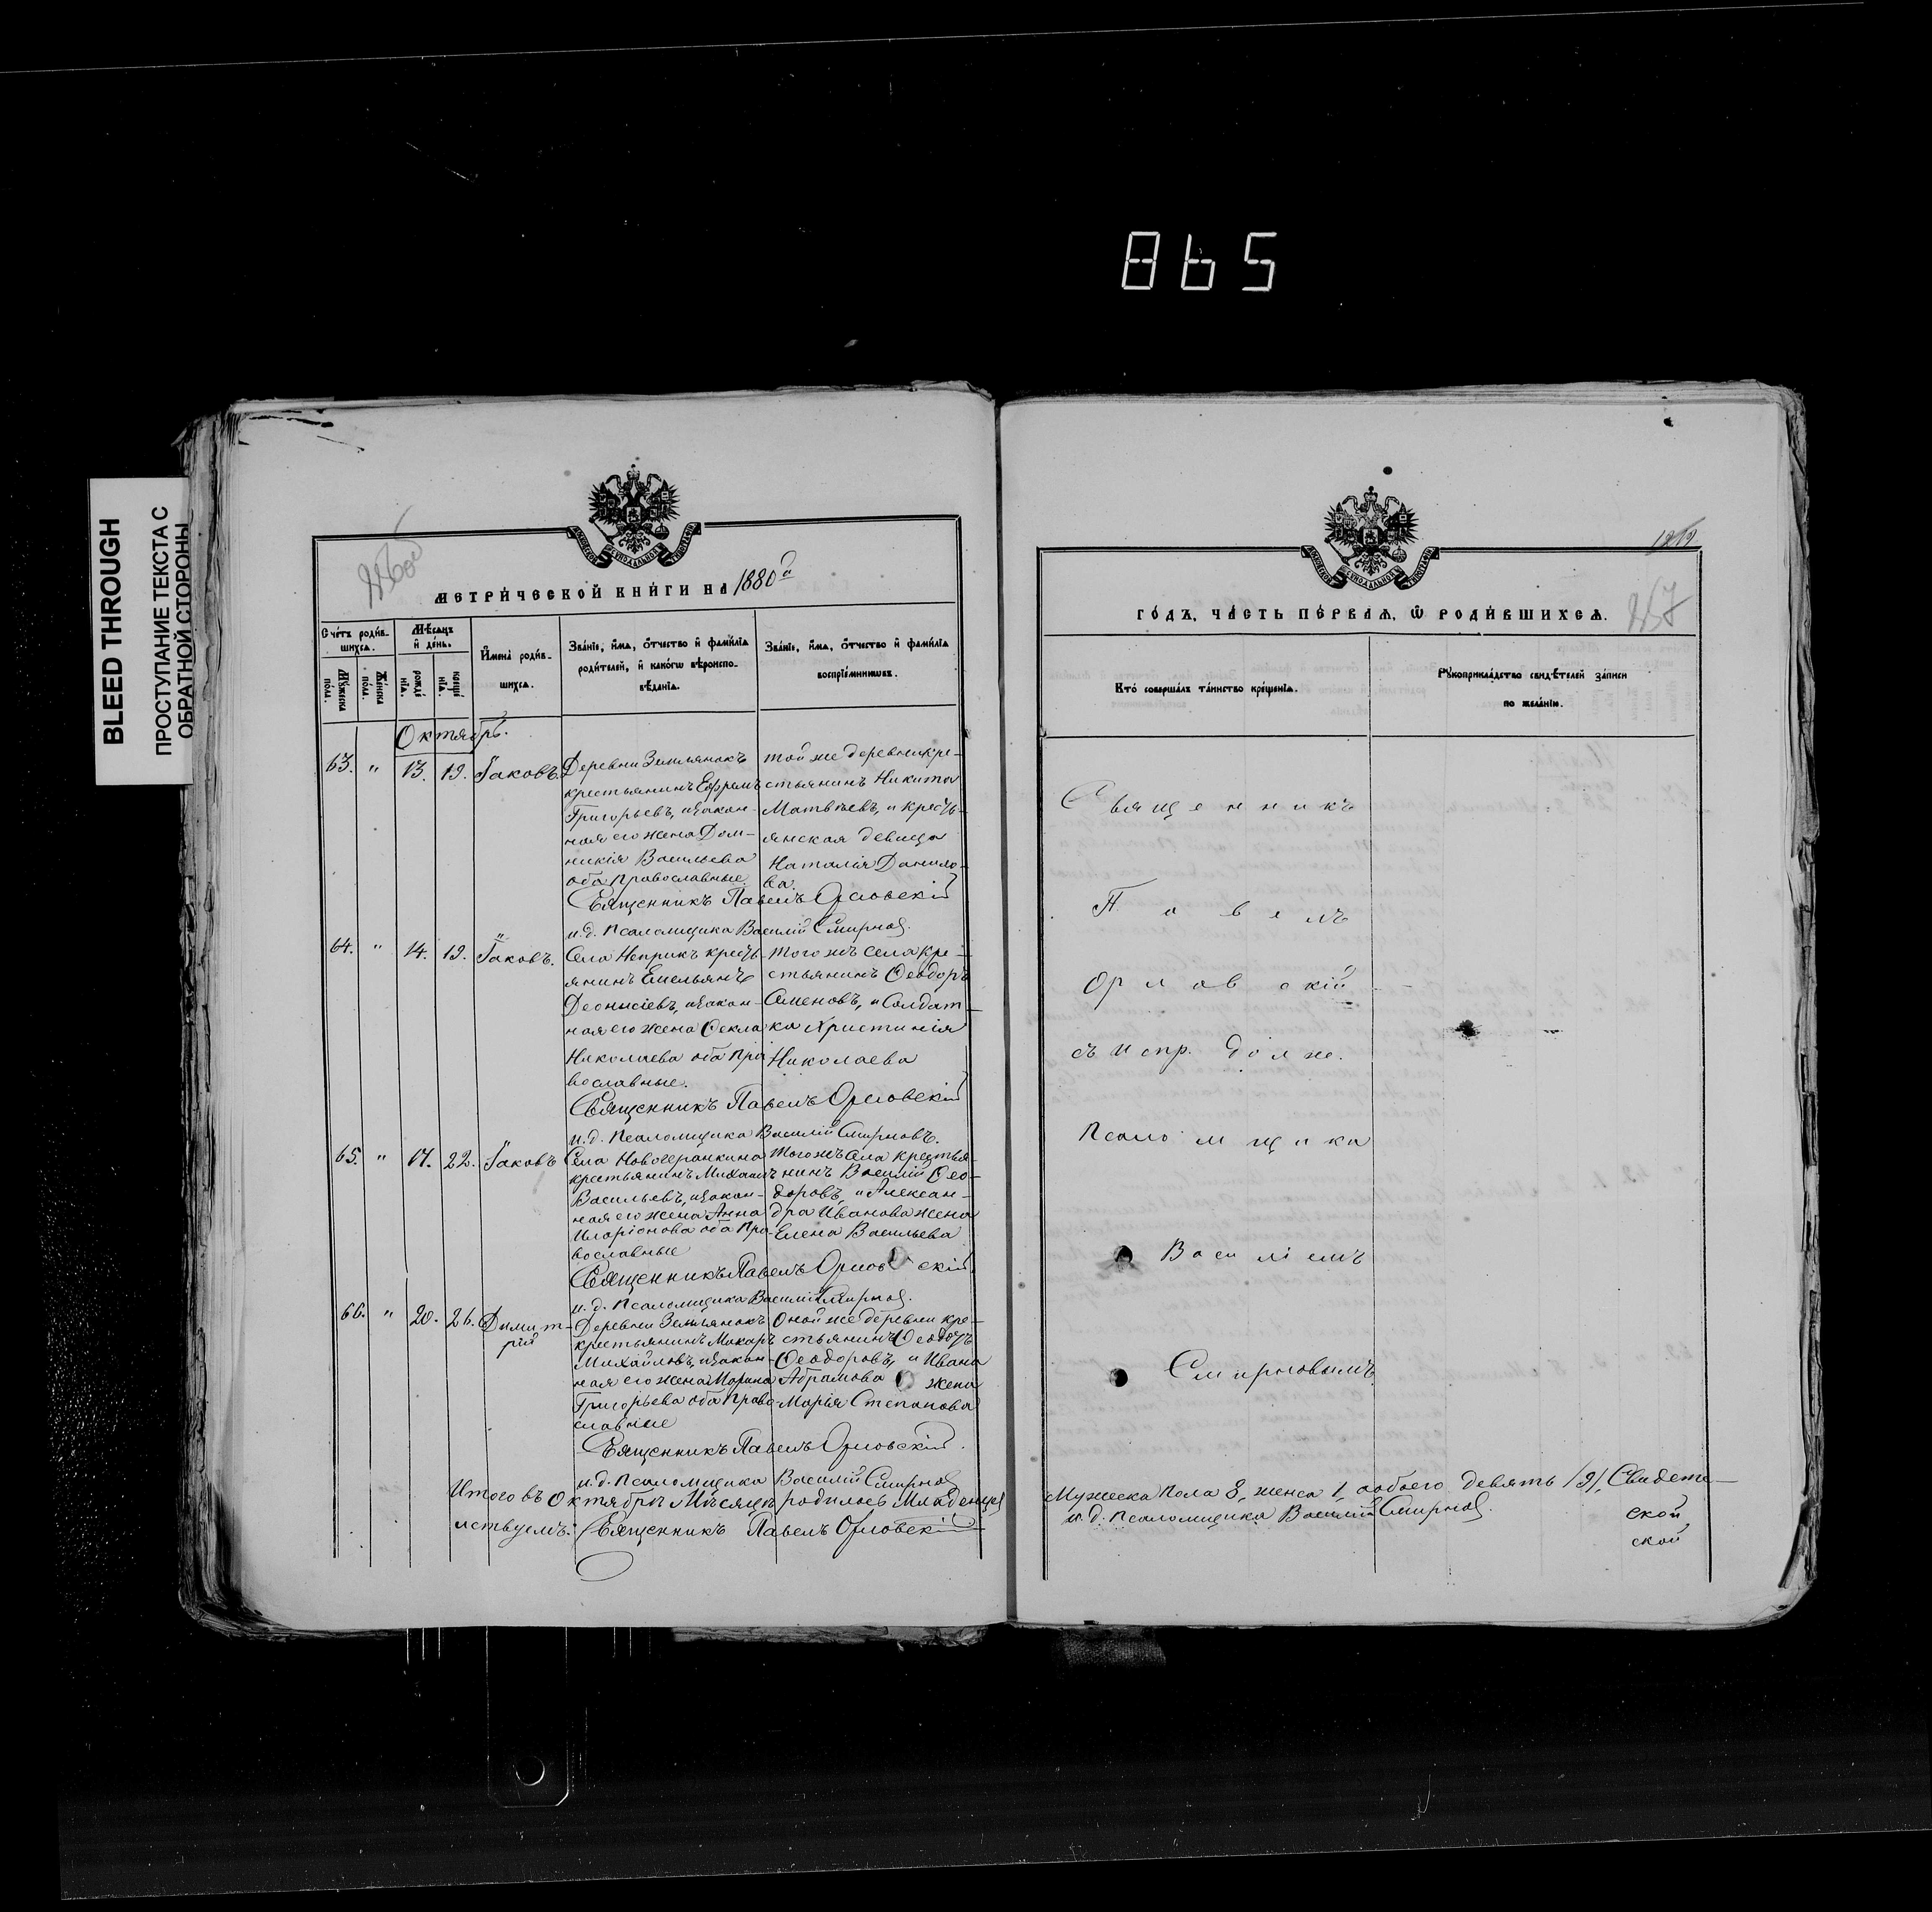 865
BLEED THROUGH
ПРОСТУПАНИЕ ТЕКСТА С
ОБРАТНОЙ СТОРОНЫ
МЕТРИЧЕСКОЙ КНИГИ НА 1880й
Счетъ родив-
шихся.
Мужеска
пола.
Женска
пола.
Мѣсяцъ
и день.
рожде
нія.
креще
нія.
Имена родив-
шихся.
Званіе, имя, отчество и фамилія
родителей, и какогω вѣроиспо-
вѣданія.
Званіе, имя, отчество и фамилія
воспріемниковъ.
Октябрь.
63. " 13. 19. Іаковъ.
Деревни Землянокъ
крестьянинъ Ефремъ
Григорьевъ, и закон-
ная его жена Дом-
никія Васильева
оба православные.
той же деревни кре-
стьянинъ Никита
Матвѣевъ, и кресть-
янская девица
Наталія Данило-
ва.
Священникъ Павелъ Орловскій
и.д. псаломщика Василій Смирнов
64. " 14. 19. Іаковъ.
Села Неприкъ кресть-
янинъ Емельянъ
Деонисіевъ, и закон-
ная его жена Ѳекла
Николаева оба пра
вославные.
того жъ села кре-
стьянинъ Ѳеодоръ
Семеновъ, и Солдат-
ка Христинія
Николаева
Священникъ Павелъ Орловскій
и.д. псаломщика Василій Смирновъ.
65. " 17. 22. Іаковъ
Села
крестьянинъ Михаилъ
Васильевъ, и закон-
ная его жена Анна
Иларіонова оба пра-
вославные
того жъ села крестья-
нинъ Василій Ѳео-
доровъ, и Алексан-
дра Иванова жена
Елена Васильева
Священникъ Павелъ Орловскій.
и.д. псаломщика Василій Смирнов.
66. " 20. 26. Димит-
рій
Деревни Землянокъ
крестьянинъ Макаръ
Михайловъ, и закон-
ная его жена Марина
Григорьева оба право
славные
Оной же деревни кре-
стьянинъ Ѳеодоръ
Ѳеодоровъ, и Ивана
Абрамова жена
Марья Степанова
Священникъ Павелъ Орловскій.
и.д. псаломщика Василій Смирнов
Итого въ Октябрѣ Мѣсяцѣ родилось Младенцев
льствуемъ: Священникъ Павелъ Орловскій
ГОДЪ, ЧАСТЬ ПЕРВАЯ, Ѡ РОДИВШИХСЯ.
Кто совершалъ таинство крещенія.
Рукоприкладство свидѣтелей записи
по желанію.
Священникъ
Павелъ
Орловскій
съ испр. долж.
псаломщика
Василіемъ
Смирновымъ
Мужеска пола 8, женса 1, а обоего девять /9/, Свидете-
и.д. псаломщика Василій Смирнов.
ской
ской